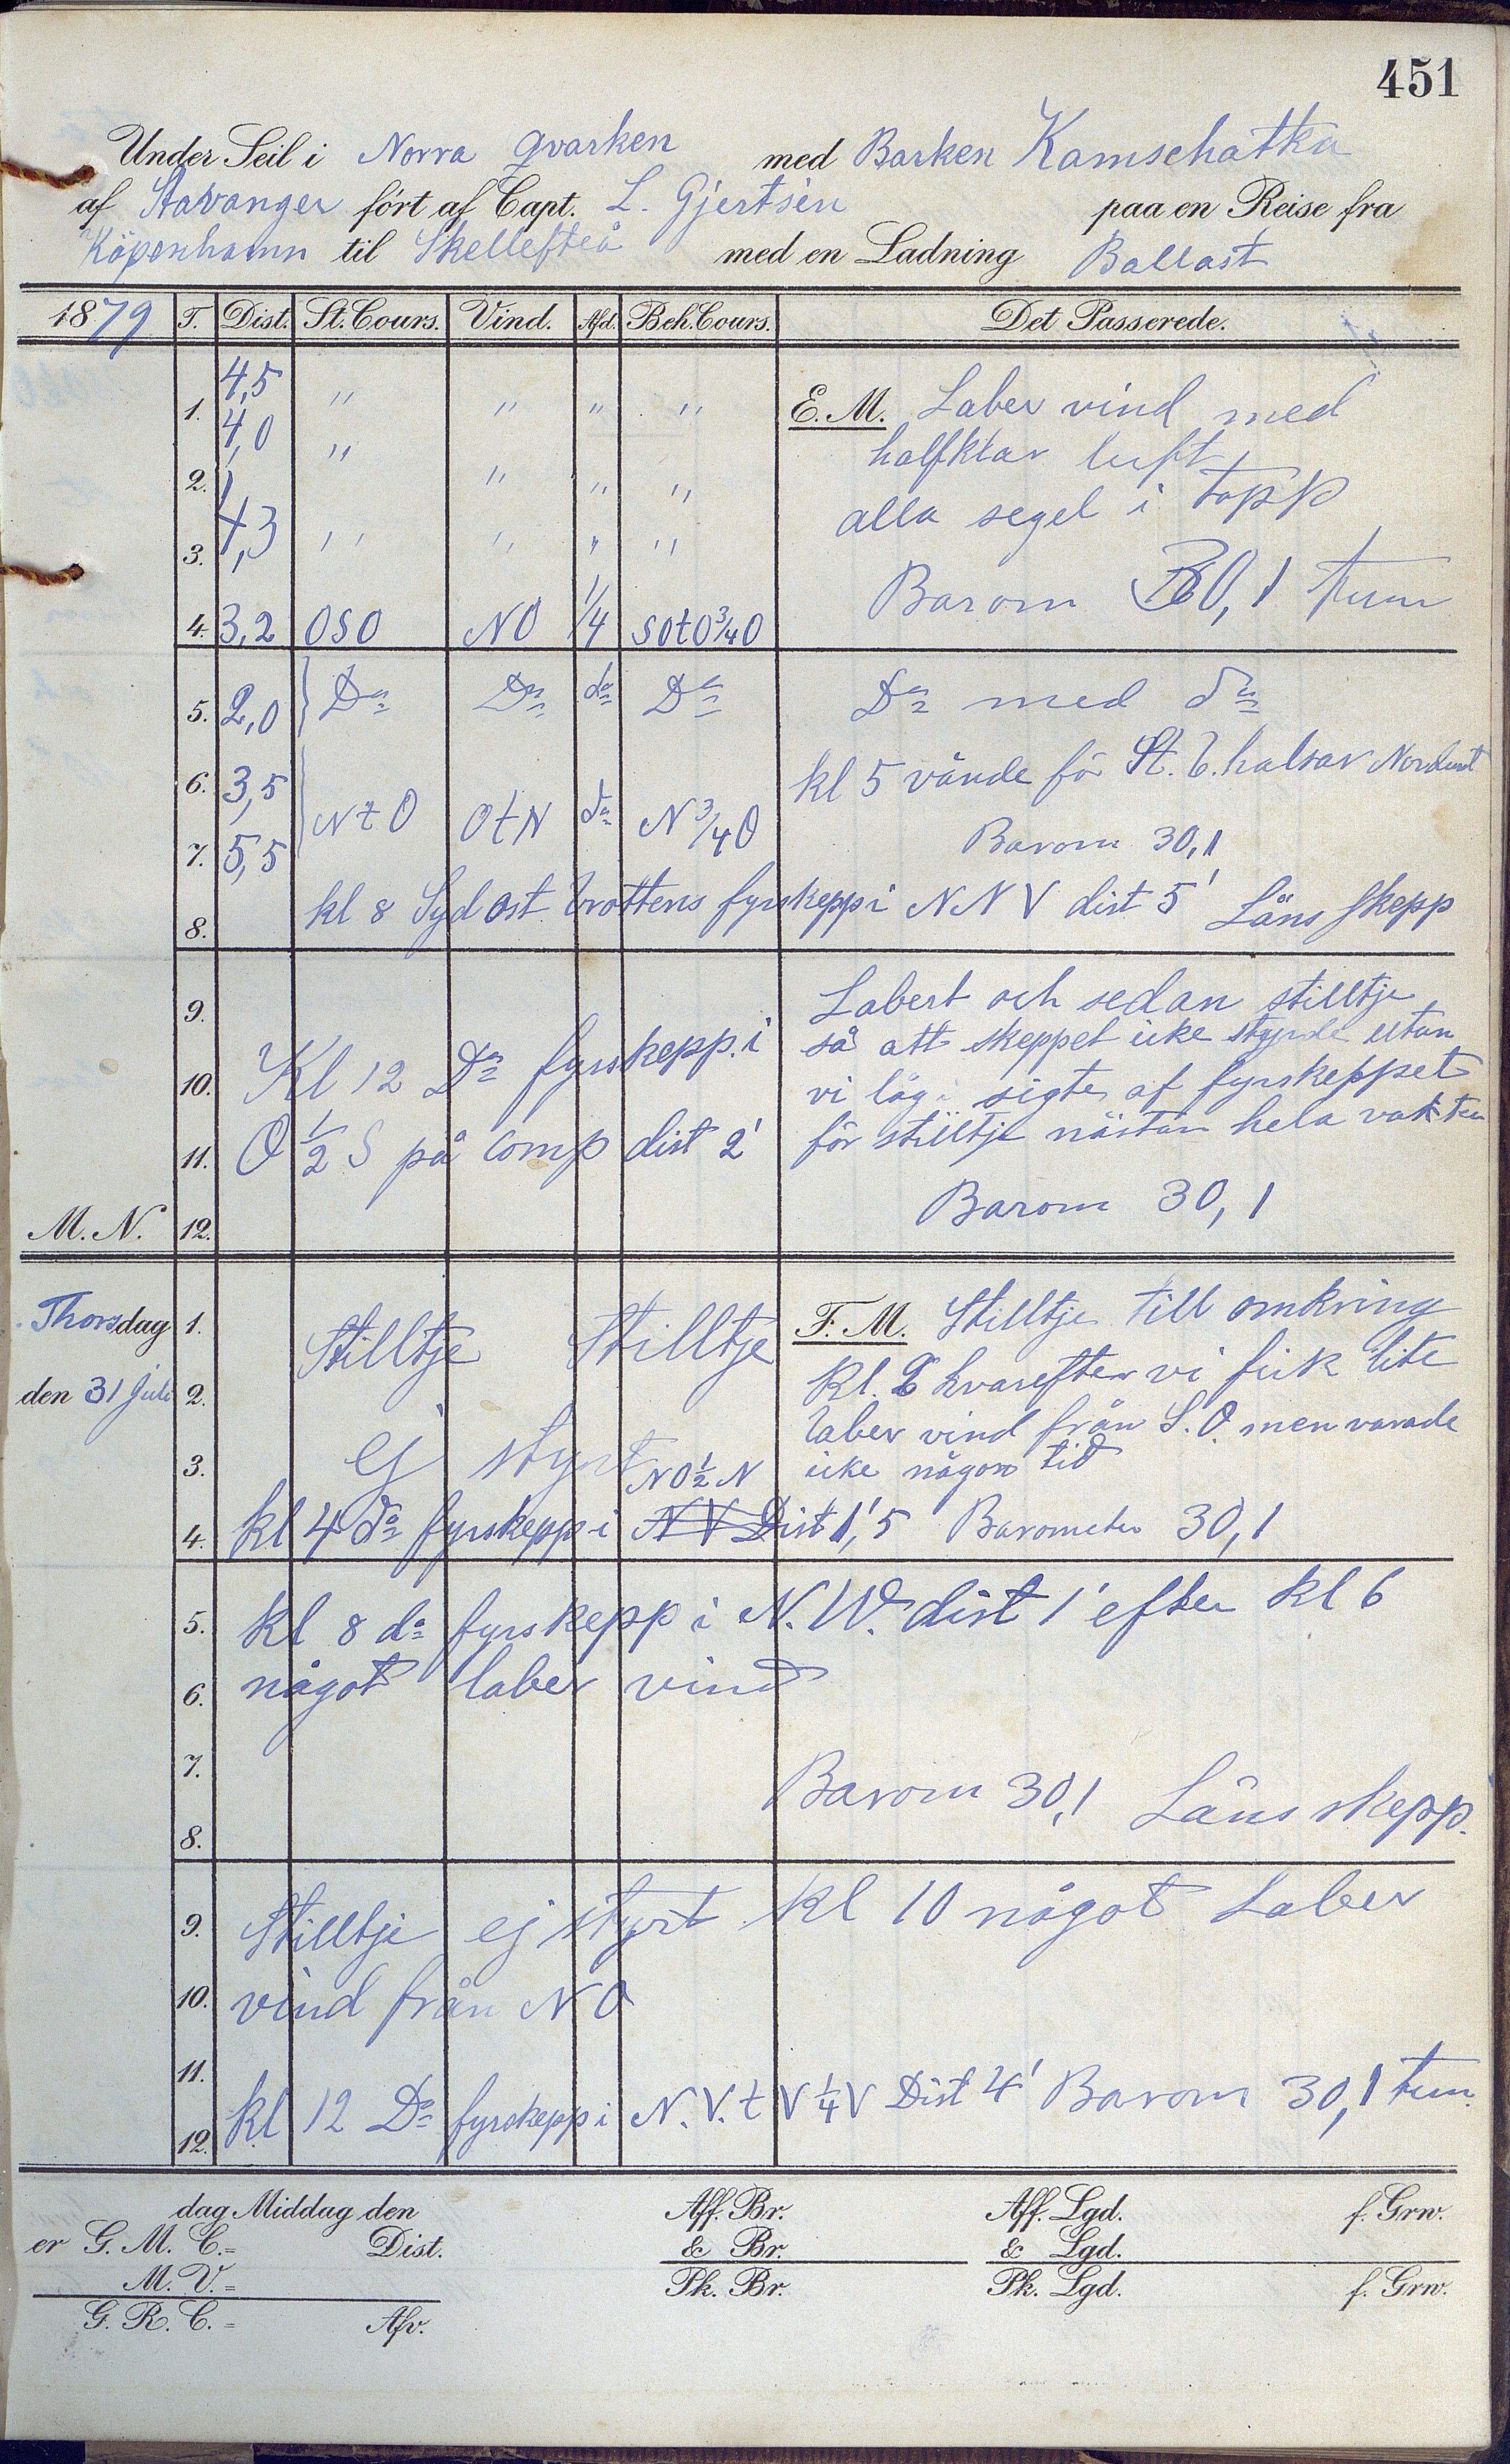 451
Under Seil i Norra Qvarken med Barken Kamschatka
af Stavanger ført af Capt. L. Gjertsen paa en Reise fra
Köpenhamn til Skellefteå med en Ladning Ballast
1879 T. Dist. St. Cours. Vind. Afd. Beh. Cours. Det Passerede.
4,5
1. " " " " E. M. Laber vind med
4,0 " halfklar luft
2. " " " alla segel i topp
4,3
3. " " " "
Barom 30,1 tum
4. 3,2 OSO NO 1/4 SOtO 3/4 O
5. 2,0 Do Do do Do Do med do
6. 3,5 kl 5 vände för St. B. halsar Nordost
NtO OtN do N 3/4 O
7. 5,5 Barom 30,1
8. kl 8 Sydost Brottens fyrskepp i NNV dist 5' Läns skepp
9. Labert och sedan stilltje
så att skeppet icke styrde utan
10. Kl 12 Do fyrskepp. i vi låg i sigte af fyrskeppet
11. O 1/2 S på comp dist 2' för stilltje nästan hela vakten
Barom 30,1
M. N. 12.
Thorsdag 1. Stilltje Stilltje F. M. Stilltje till omkring
den 31 Juli 2. kl. 2 hvarefter vi fick lite
ej styrt laber vind från S.O. men varade
3. NO 1/2 N icke någon tid
4. kl 4 do fyrskepp i NV Dist 1',5 Barometer 30,1
5. kl 8 do fyrskepp i N.W. dist 1' efter kl 6
6. något laber vind
7.
Barom 30,1 Läns skepp.
8.
9. Stilltje ej styrt kl 10 något Laber
10. vind från NO
11.
12. kl 12 Do fyrskepp i N.V.t V 1/4 V Dist 4' Barom 30,1 tum.
dag Middag den Aff. Br. Aff. Lgd. f. Grw.
er G. M. C.= Dist. & Br. & Lgd.
M. V.= Pk. Br. Pk. Lgd. f. Grw.
G. R. C.= Afv.